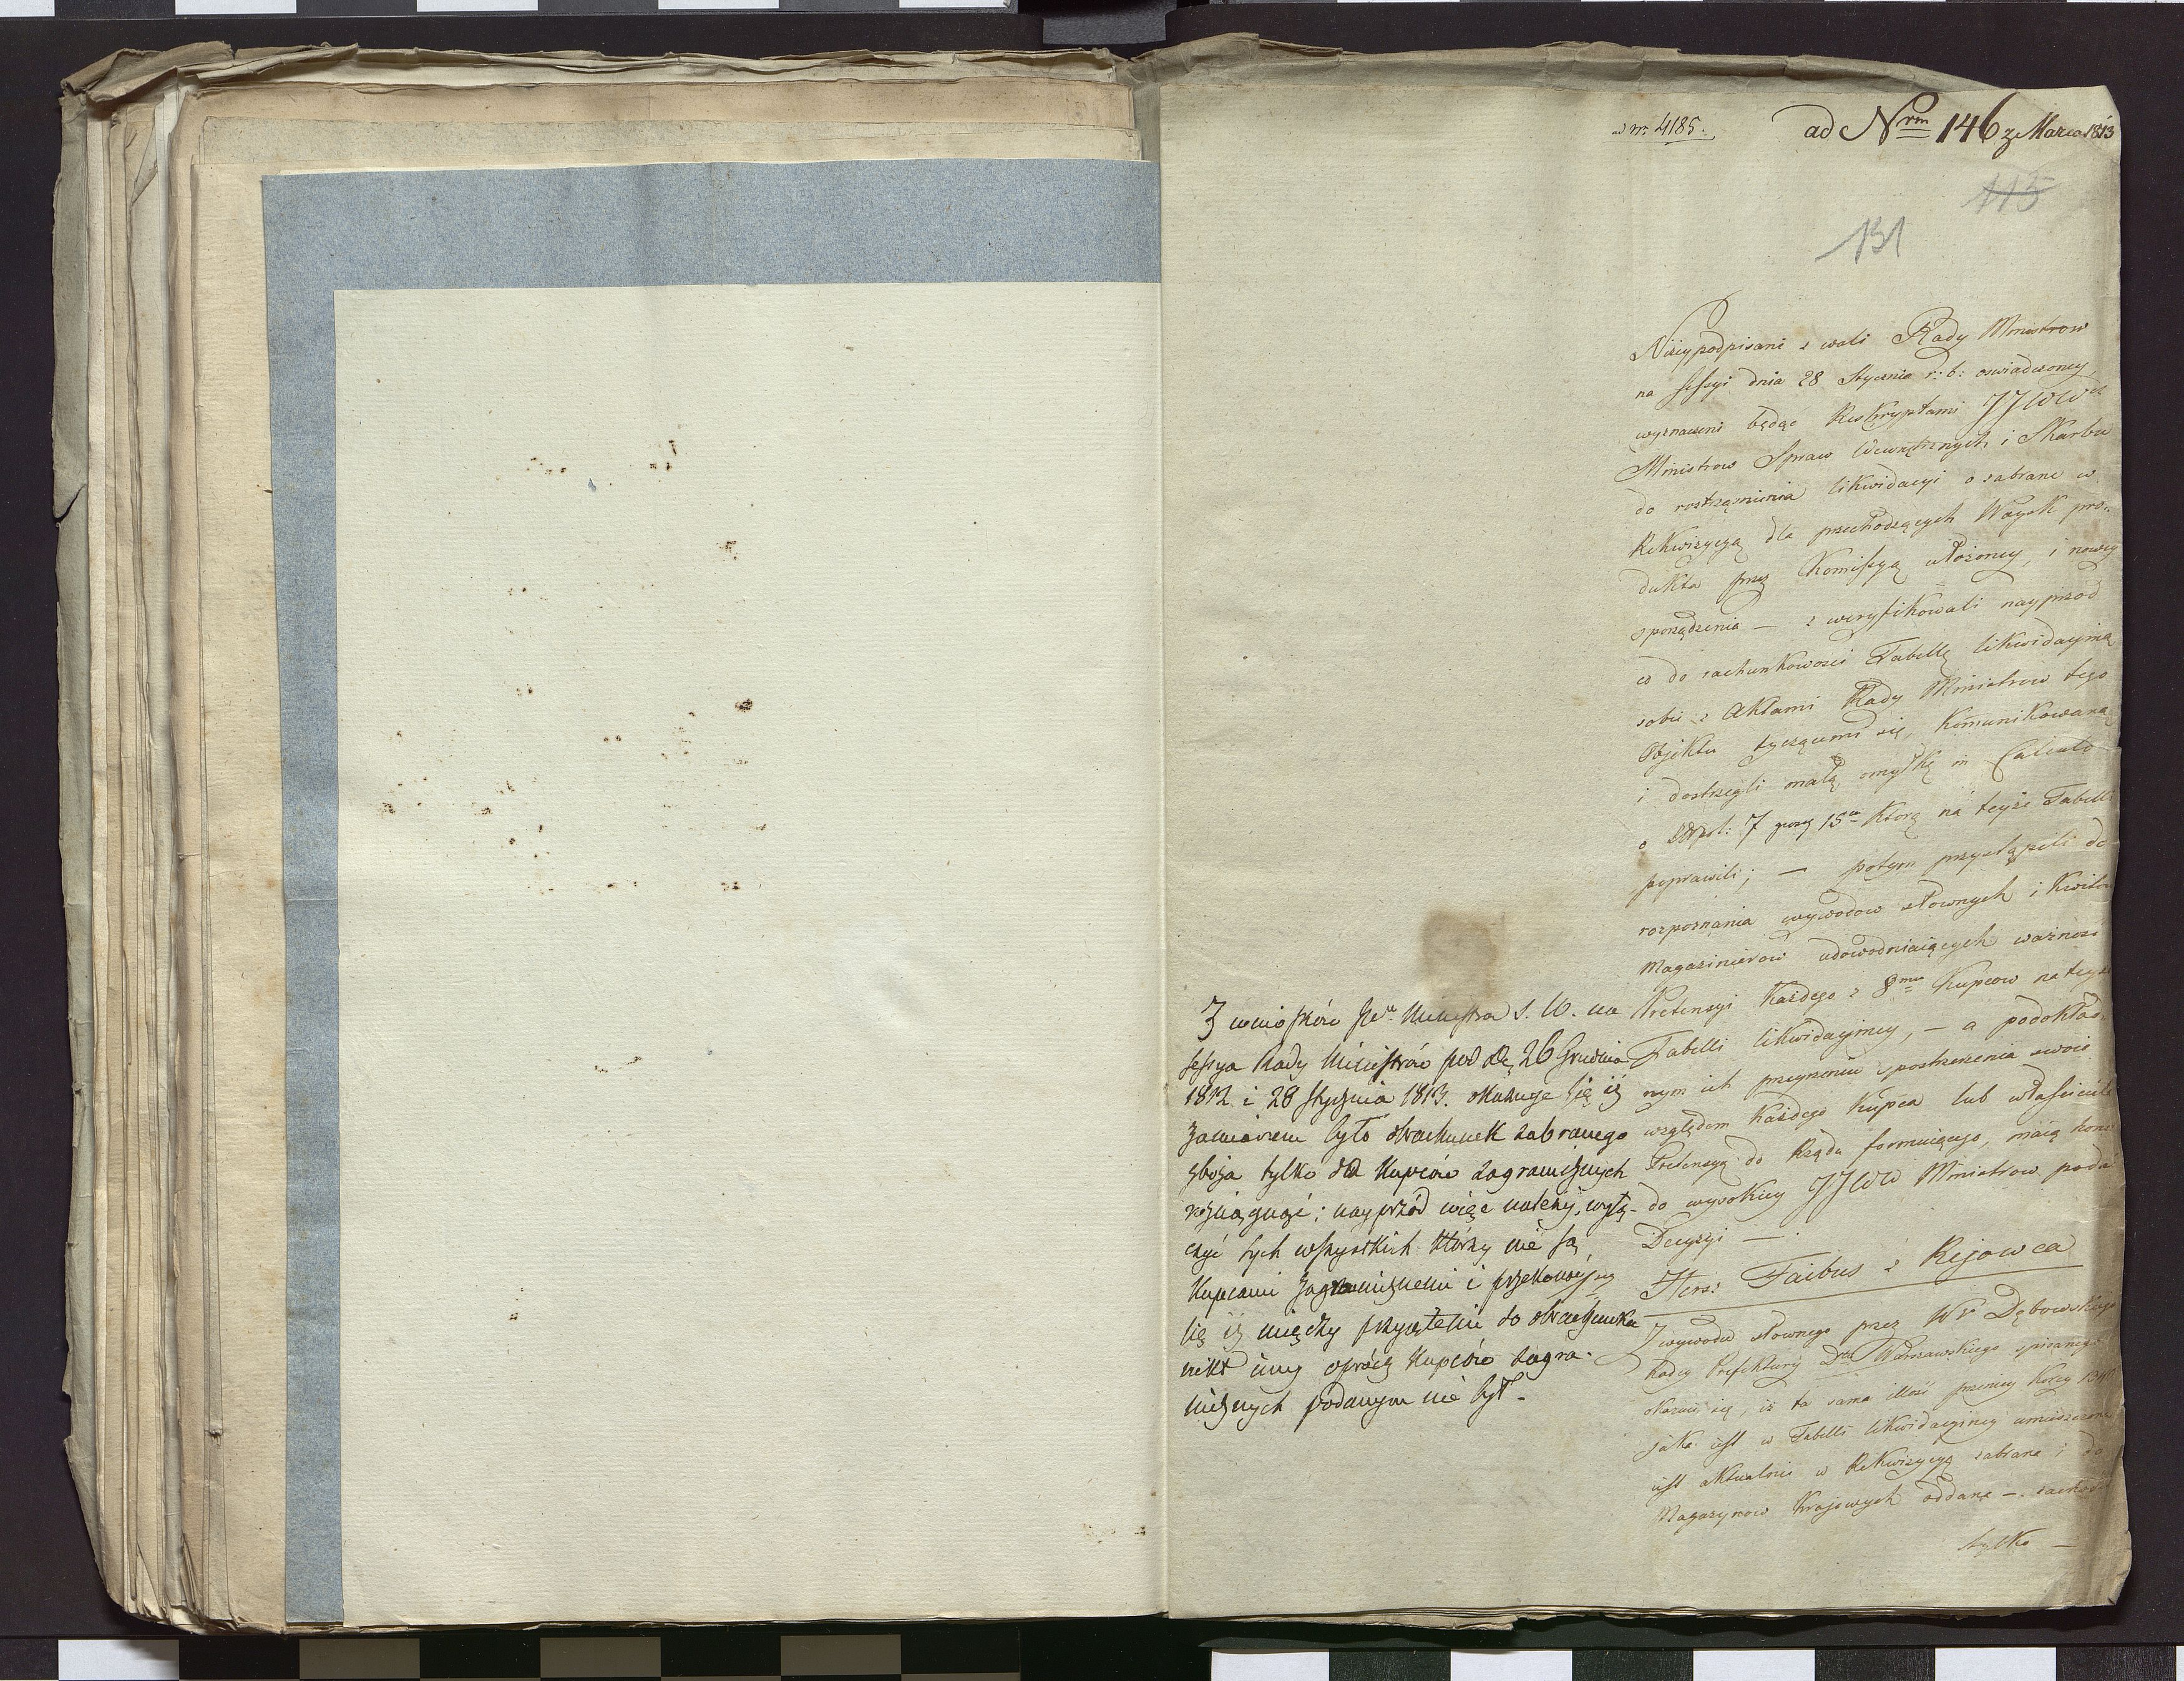 ad Nr. 4185.
ad Nrm 146 z Marca 1813
115
131
Niżeypodpisani z woli Rady Ministrow
na sessyi dnia 28 Stycznia r: b: oswiadczoney,
wyznaczeni będąc Reskryptami JJWWch
Ministrow Spraw Wewnętrznych i Skarbu
do roztrząsnienia likwidacyi o zabrane w
Rekwizycyą dla przechodzących Woysk pro-
dukta przez Komissyą ułożoney, i nowey
sporządzenia — zweryfikowali nayprzod
co do rachunkowosci Tabellę likwidacyiną
sobie z Aktami Rady Ministrow tego
Objektu tyczącemi się, Komunikowaną
i dostrzegli małą omyłkę in Calculo
o Złłpol: 7 groszy 15cie Którą na teyże Tabelli
poprawili; — potym przystąpili do
rozpoznania wywodow słownych i Kwitow
Magazinierow udowodniaiących ważnosc
Pretensyi Każdego z 8miu Kupcow na teyże
Tabelli likwidacyiney, — a podokład-
nym ich przeyrzeniu spostrzezenia swoie
względem Każdego Kupca lub własciciela
Pretensyą do Rządu formuiącego, maią honor
do wysokiey JJWW Ministrow podać
Decyzyi —.
Hers: Faibus z Rejowca
Z wywodu słownego przez Wo Dąbowskiego
Radcy Prefektury Dtu Warszawskiego spisanego
okazuie się, iż ta sama illość pszenicy Korcy 1340
jaka iest w Tabelli likwidacyiney umieszczona
iest aktualnie w Rekwizycyą zabrana i do
Magazynow Krajowych oddana —. zachodzi
tylko —
Z wniosków Jwo Ministra S. W. na
sessya Rady Ministrów pod dn 26 Grudnia
1812 i 28 Stycznia 1813. okazuje się iż
zamiarem było obrachunek zabranego
zboża tylko dla Kupców zagranicznych
rozciągnąć; nayprzód więc należy, wyłą-
czyć tych wszystkich którzy nie są
Kupcami zagranicznemi i przekonać
się iż między przyjętemi do obrachunku
nikt inny oprócz Kupców zagra-
nicznych podanym nie był.